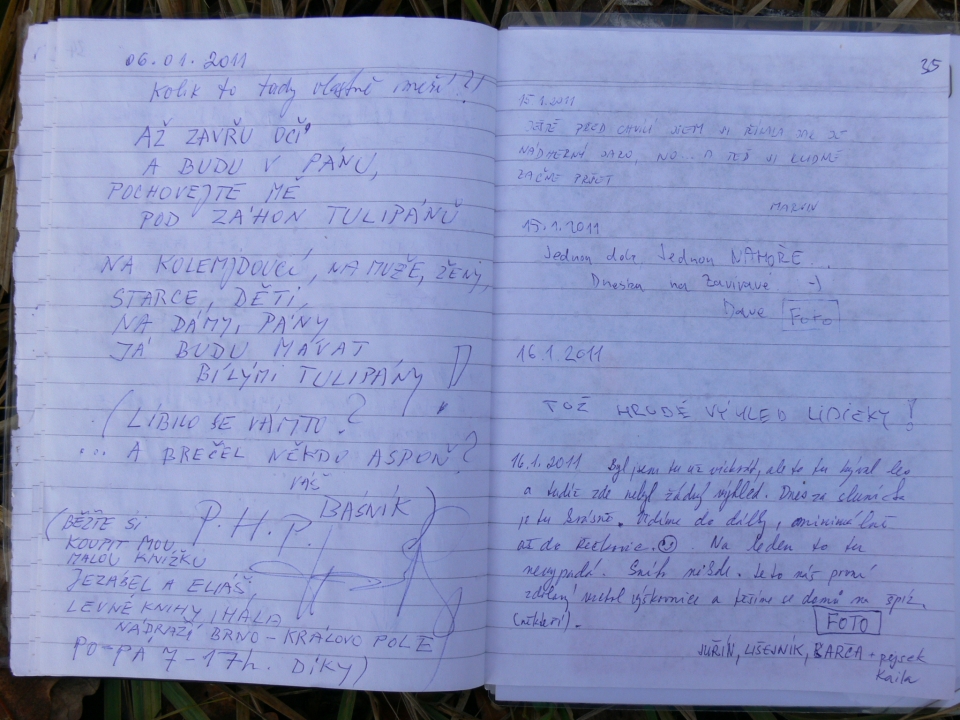 06.01.2011
Kolik to tady vlastně měří!?!
AŽ ZAVŘU OČI
A BUDU V PÁNU,
POCHOVEJTE MĚ
POD ZÁHON TULIPÁNŮ
NA KOLEMJDOUCÍ, NA MUŽE, ŽENY,
STARCE, DĚTI,
NA DÁMY, PÁNY
JÁ BUDU MÁVAT
BÍLÝMI TULIPÁNY!
(LÍBILO SE VÁM TO?
... A BREČEL NĚKDO ASPOŇ?
VÁŠ
BÁSNÍK)
P.H.P.
(BĚŽTE SI
KOUPIT MOU
MALOU KNÍŽKU
JEZABEL A ELIÁŠ,
LEVNÉ KNIHY, HALA
NÁDRAŽÍ BRNO - KRÁLOVO POLE
PO-PÁ 7-17h. DÍKY)
35
15.1.2011
JEŠTĚ PŘED CHVÍLÍ JSEM SI ŘÍKALA JAK JE
NÁDHERNÝ JARO, NO... A TEĎ SI KLIDNĚ
ZAČNE PRŠET
15.1.2011
Jednou dole, Jednou NAHOŘE...
Dneska na Zavíravé :-)
Dave FOTO
16.1.2011
TOŽ HRUDĚ VÝHLED LIDIČKY!
16.1.2011 Byl jsem tu už víckrát, ale to tu býval les
a tudíž zde nebyl žádný výhled. Dnes za sluníčka
je tu krásně. Vidíme do dálky, minimálně
až do . Na leden to tu
nevypadá. Sníh nikde. Je to náš první
vrchol výškovnice a těšíme se domů na
(někteří).
FOTO
JUŘÍN, LIŠEJNÍK, BARČA + pejsek
Kaila